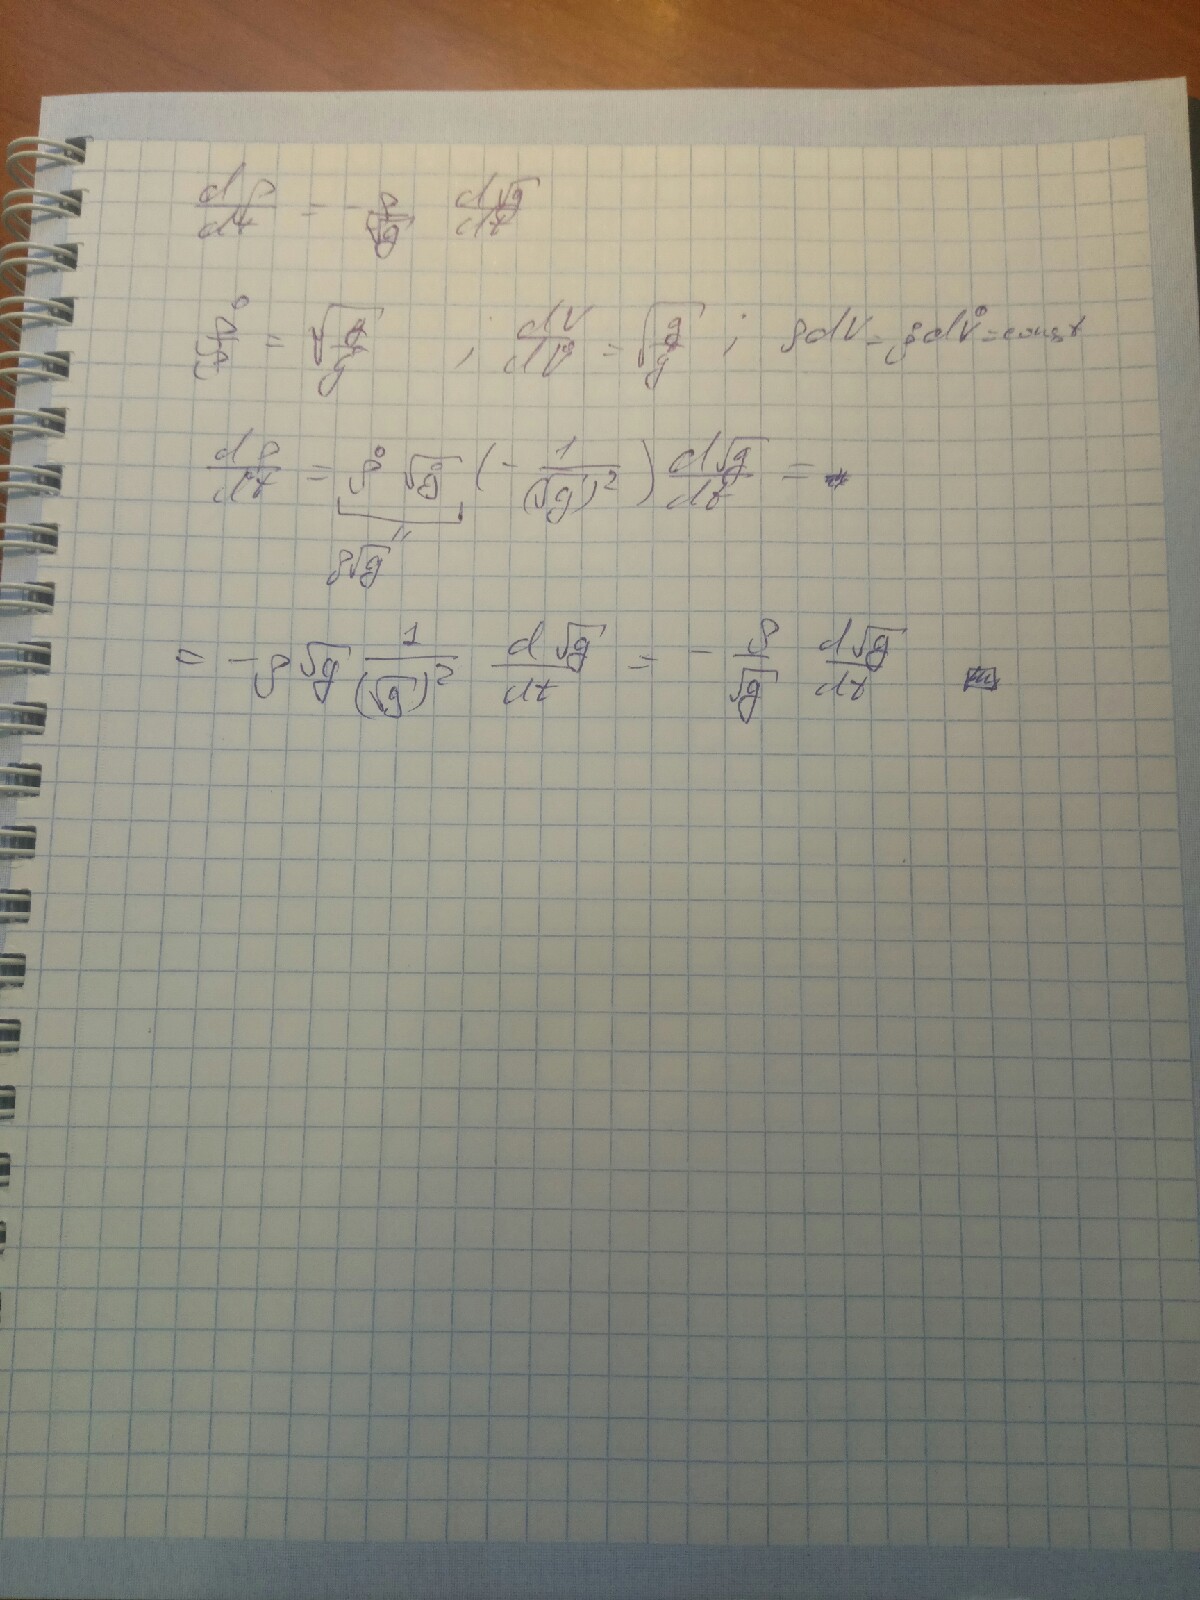 dρ/dt = - ρ/√g d√g/dt
ρ°/ρ = √(g/g°) , dV/dV° = √(g/g°) ; ρdV = ρ°dV° = const
dρ/dt = ρ° √g° (- 1/(√g)²) d√g/dt =
ρ√g
= - ρ √g 1/(√g)² d√g/dt = - ρ/√g d√g/dt